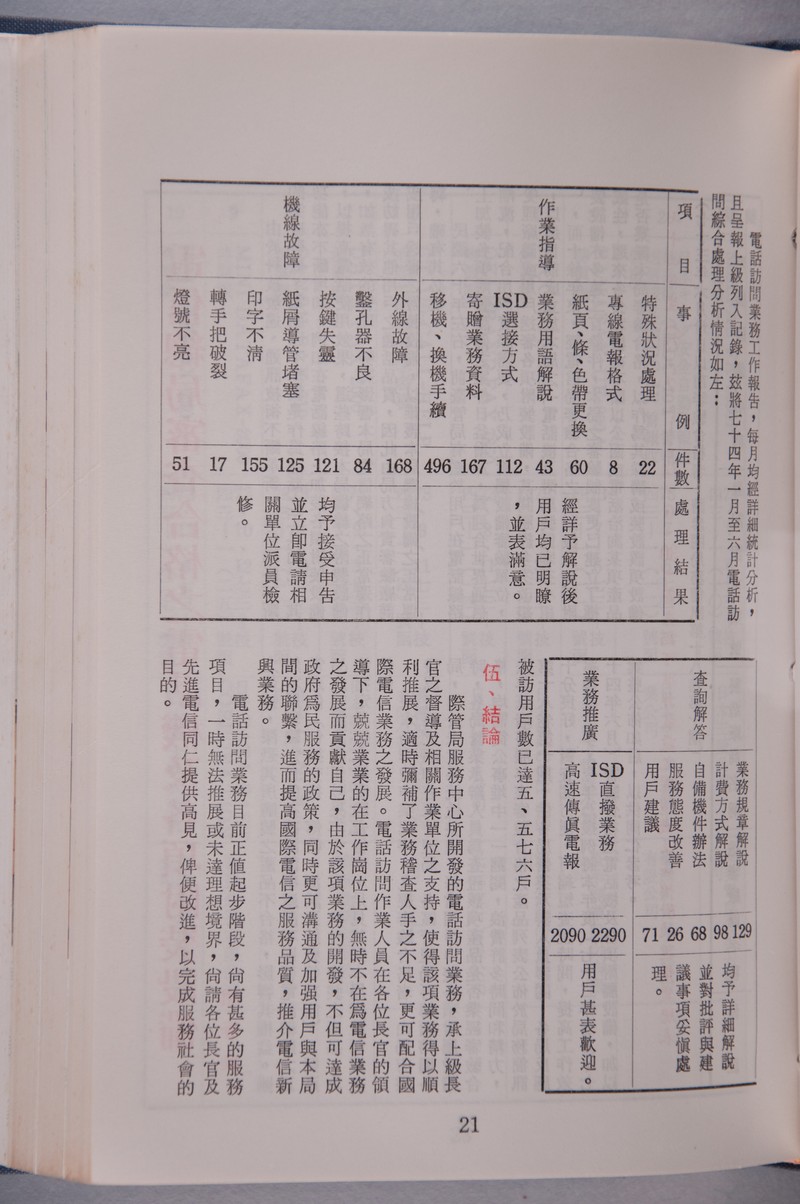 電話訪問業務工作報告，每月均經詳細統計分析，
且呈報上級列入記錄，玆將七十四年一月至六月電話訪
問綜合處理分析情況如左：
項目
事例
件數
處理結果
作業指導
特殊狀況處理
22
專線電報格式
8
紙頁、條、色帶更換
60
業務用語解說
43
ISD選接方式
112
寄贈業務資料
167
移機、換機手續
496
經詳予解說後
用戶均已明瞭
，並表滿意。
機線故障
外線故障
168
鑿孔器不良
84
按鍵失靈
121
紙屑導管堵塞
125
印字不清
155
轉手把破裂
17
燈號不亮
51
均予接受申告
並立卽電請相
關單位派員檢
修。
查詢解答
業務規章解說
129
計費方式解說
98
自備機件辦法
68
服務態度改善
26
用戶建議
71
均予詳細解說
並對批評與建
議事項妥愼處
理。
業務推廣
ISD直撥業務
2290
高速傳眞電報
2090
用戶甚表歡迎。
被訪用戶數已達五、五七六戶。
伍、結論
際管局服務中心所開發的電話訪問業務，承上級長
官之督導及相關作業單位之支持，使得該項業務得以順
利推展，適時彌補了業務稽查人手之不足，更可配合國
際電信業務之發展。電話訪問作業人員在各位長官的領
導下，兢兢業業的在工作崗位上，無時不在爲電信業務
之發展而貢獻自己，由於該項業務的開發，不但可達成
政府爲民服務的政策，同時更可溝通及加强用戶與本局
間的聯繫，進而提高國際電信之服務品質，推介電信新
興業務。
電話訪問業務目前正値起步階段，尙有甚多的服務
項目，一時無法推展或未達理想境界，尙請各位長官及
先進電信同仁提供高見，俾便改進，以完成服務社會的
目的。
21